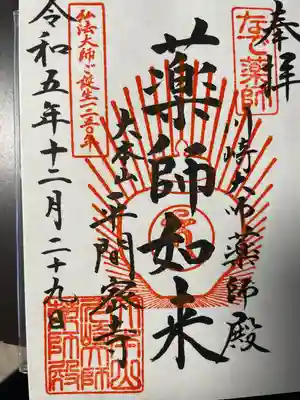 奉拝
なで薬師
川崎大師薬師殿
薬師如来
大本山平間寺
弘法大師ご誕生一二五〇年
令和五年十二月二十九日